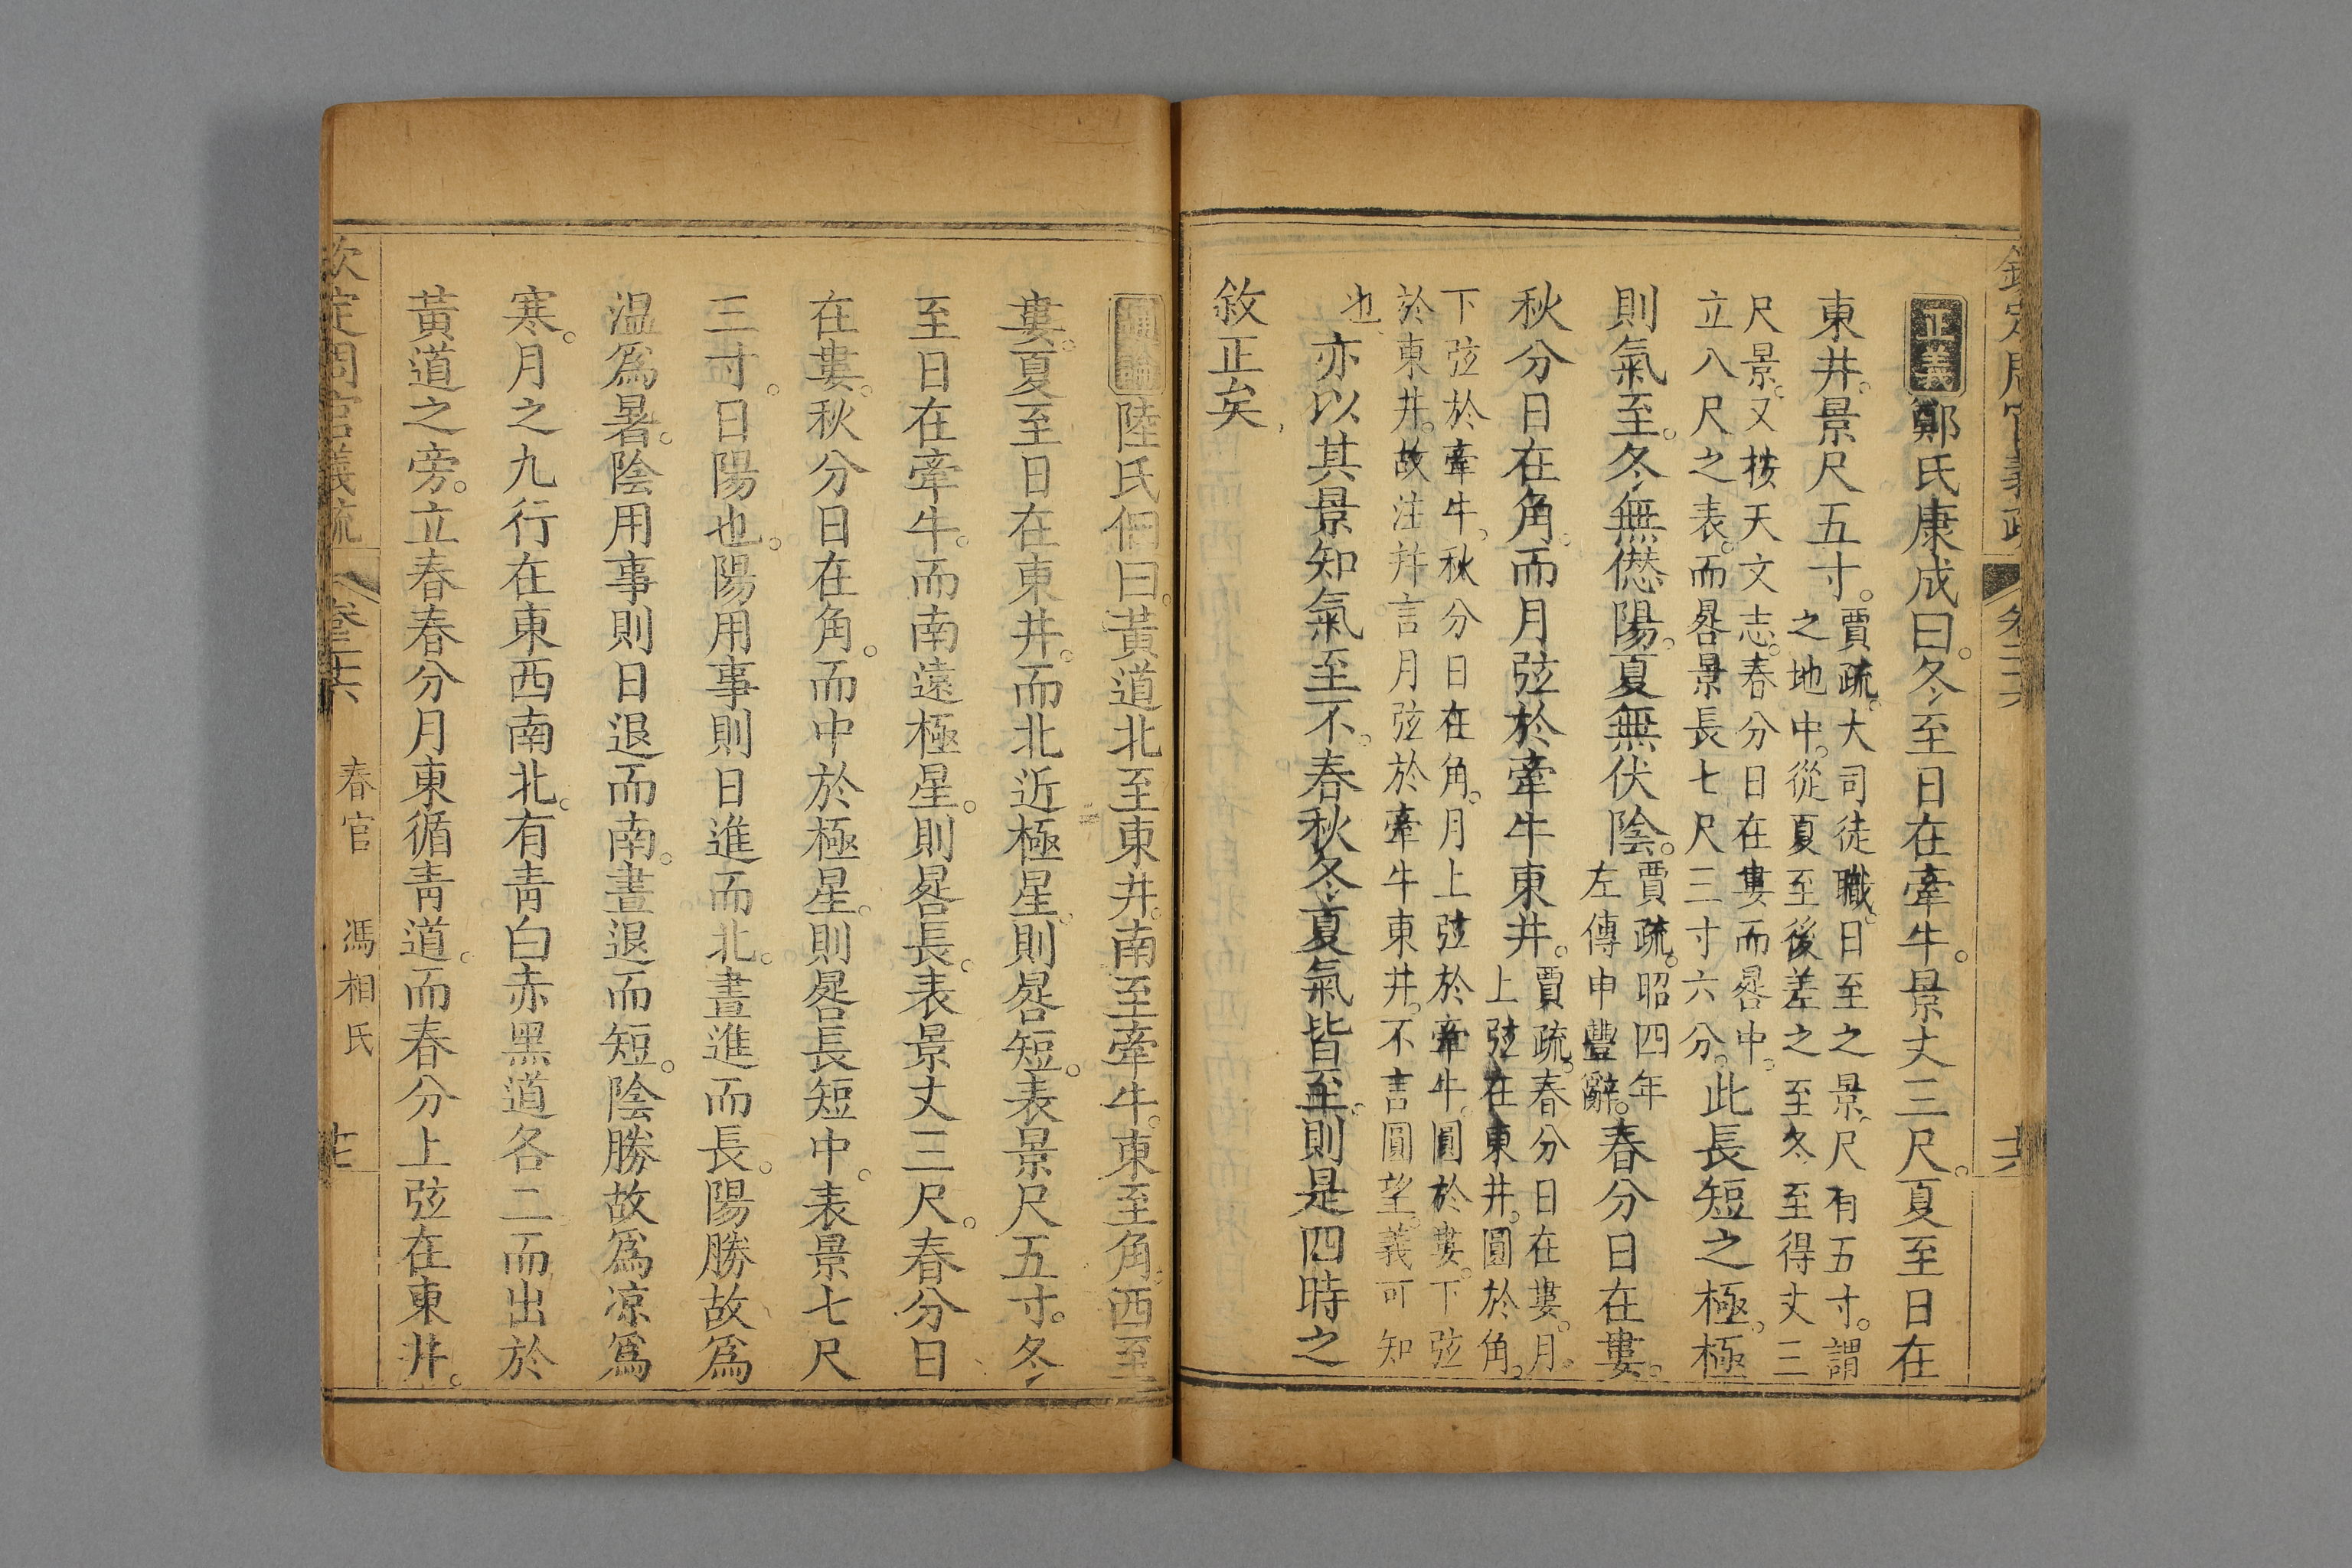 欽定周官義疏 卷二十六 十六
正義鄭氏康成曰。冬至日在牽牛。景丈三尺。夏至日在
東井。景尺五寸。賈疏。大司徒職。日至之景。尺有五寸。謂
之地中。從夏至後差之至冬至得丈三
尺景。又按天文志。春分日在婁而晷中。
立八尺之表。而晷景長七尺三寸六分。此長短之極。極
則氣至。冬無愆陽。夏無伏陰。賈疏。昭四年
左傳申豐辭。春分日在婁。
秋分日在角。而月弦於牽牛東井。賈疏。春分日在婁。月
上弦在東井。圓於角。
下弦於牽牛。秋分日在角。月上弦於牽牛。圓於婁。下弦
於東井。故注幷言月弦於牽牛東井。不言圓望。義可知
也。亦以其景知氣至不。春秋冬夏氣皆至。則是四時之
敘正矣。
通論陸氏佃曰。黃道北至東井。南至牽牛。東至角。西至
婁。夏至日在東井。而北近極星。則晷短。表景尺五寸。冬
至日在牽牛。而南遠極星。則晷長。表景丈三尺。春分日
在婁。秋分日在角。而中於極星。則晷長短中。表景七尺
三寸。日陽也。陽用事則日進而北。晝進而長。陽勝故爲
溫爲暑。陰用事則日退而南。晝退而短。陰勝故爲凉爲
寒。月之九行在東西南北。有靑白赤黑道各二而出於
黃道之旁。立春春分月東循靑道。而春分上弦在東井。
欽定周官義疏 卷二十六 春官 馮相氏 十七